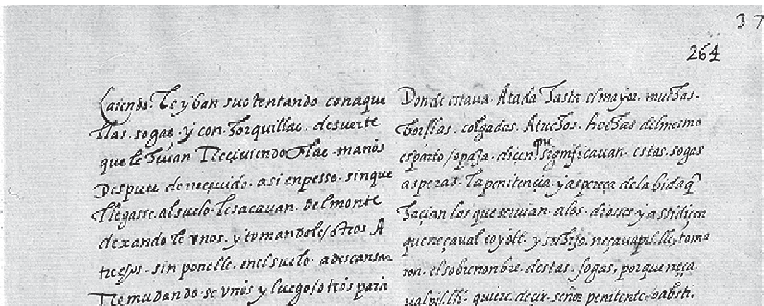 37
264
Caiendo. le yban sustentando. con aque
llas. sogas. y con horquillas. de suerte
que le yuan Reçiuiendo En las manos
Despues de neçuido. asi en pesso. sin que
llegasse. al suelo. le sacauan. del monte
dexando le vnos. y tomandoles otros. A
trechos. sin ponelle. en el suelo. a descansar
Remudando. se vnos y luego otros para
Donde estaua. Atada hasta el mayor. muchas.
borllas. colgadas. A trechos. hechas del mesmo
esparto, o paja. dicen que significauan. estas sogas
asperas. la penitencia y aspereça de la bida q
hacian los que seruian a los dioses y assi diçen
que neçaual coyotl. y su hijo neçaualpilli, toma
ron. el sobrenombre. destas. sogas. porque neça
ualpilli. quiere. decir. señor penitente.